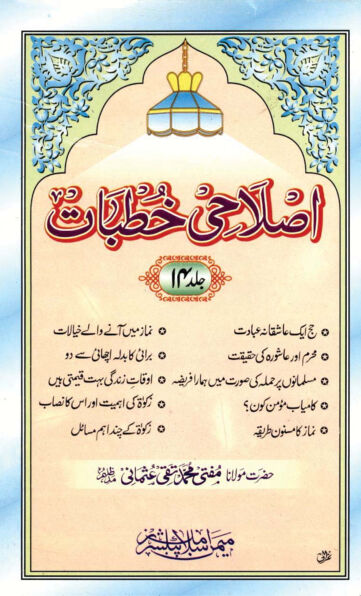 اصلاحی خطبات
جلد ۱۴
حج ایک عاشقانہ عبادت
محرم اور عاشورہ کی حقیقت
مسلمانوں پر حملہ کی صورت میں ہمارا فریضہ
کامیاب مؤمن کون؟
نماز کا مسنون طریقہ
نماز میں آنے والے خیالات
برائی کا بدلہ اچھائی سے دو
اوقات زندگی بہت قیمتی ہیں
زکوٰۃ کی اہمیت اور اس کا نصاب
زکوٰۃ کے چند اہم مسائل
حضرت مولانا مفتی محمد تقی عثمانی مدظلہم
میمن اسلامک پبلشرز